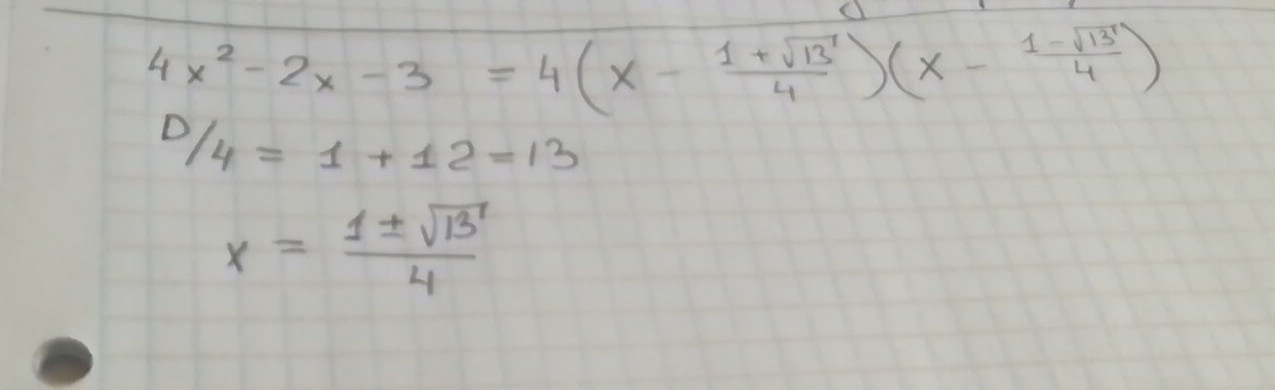 4x² - 2x - 3 = 4(x - (1 + √13)/4)(x - (1 - √13)/4)
D/4 = 1 + 12 = 13
x = (1 ± √13)/4